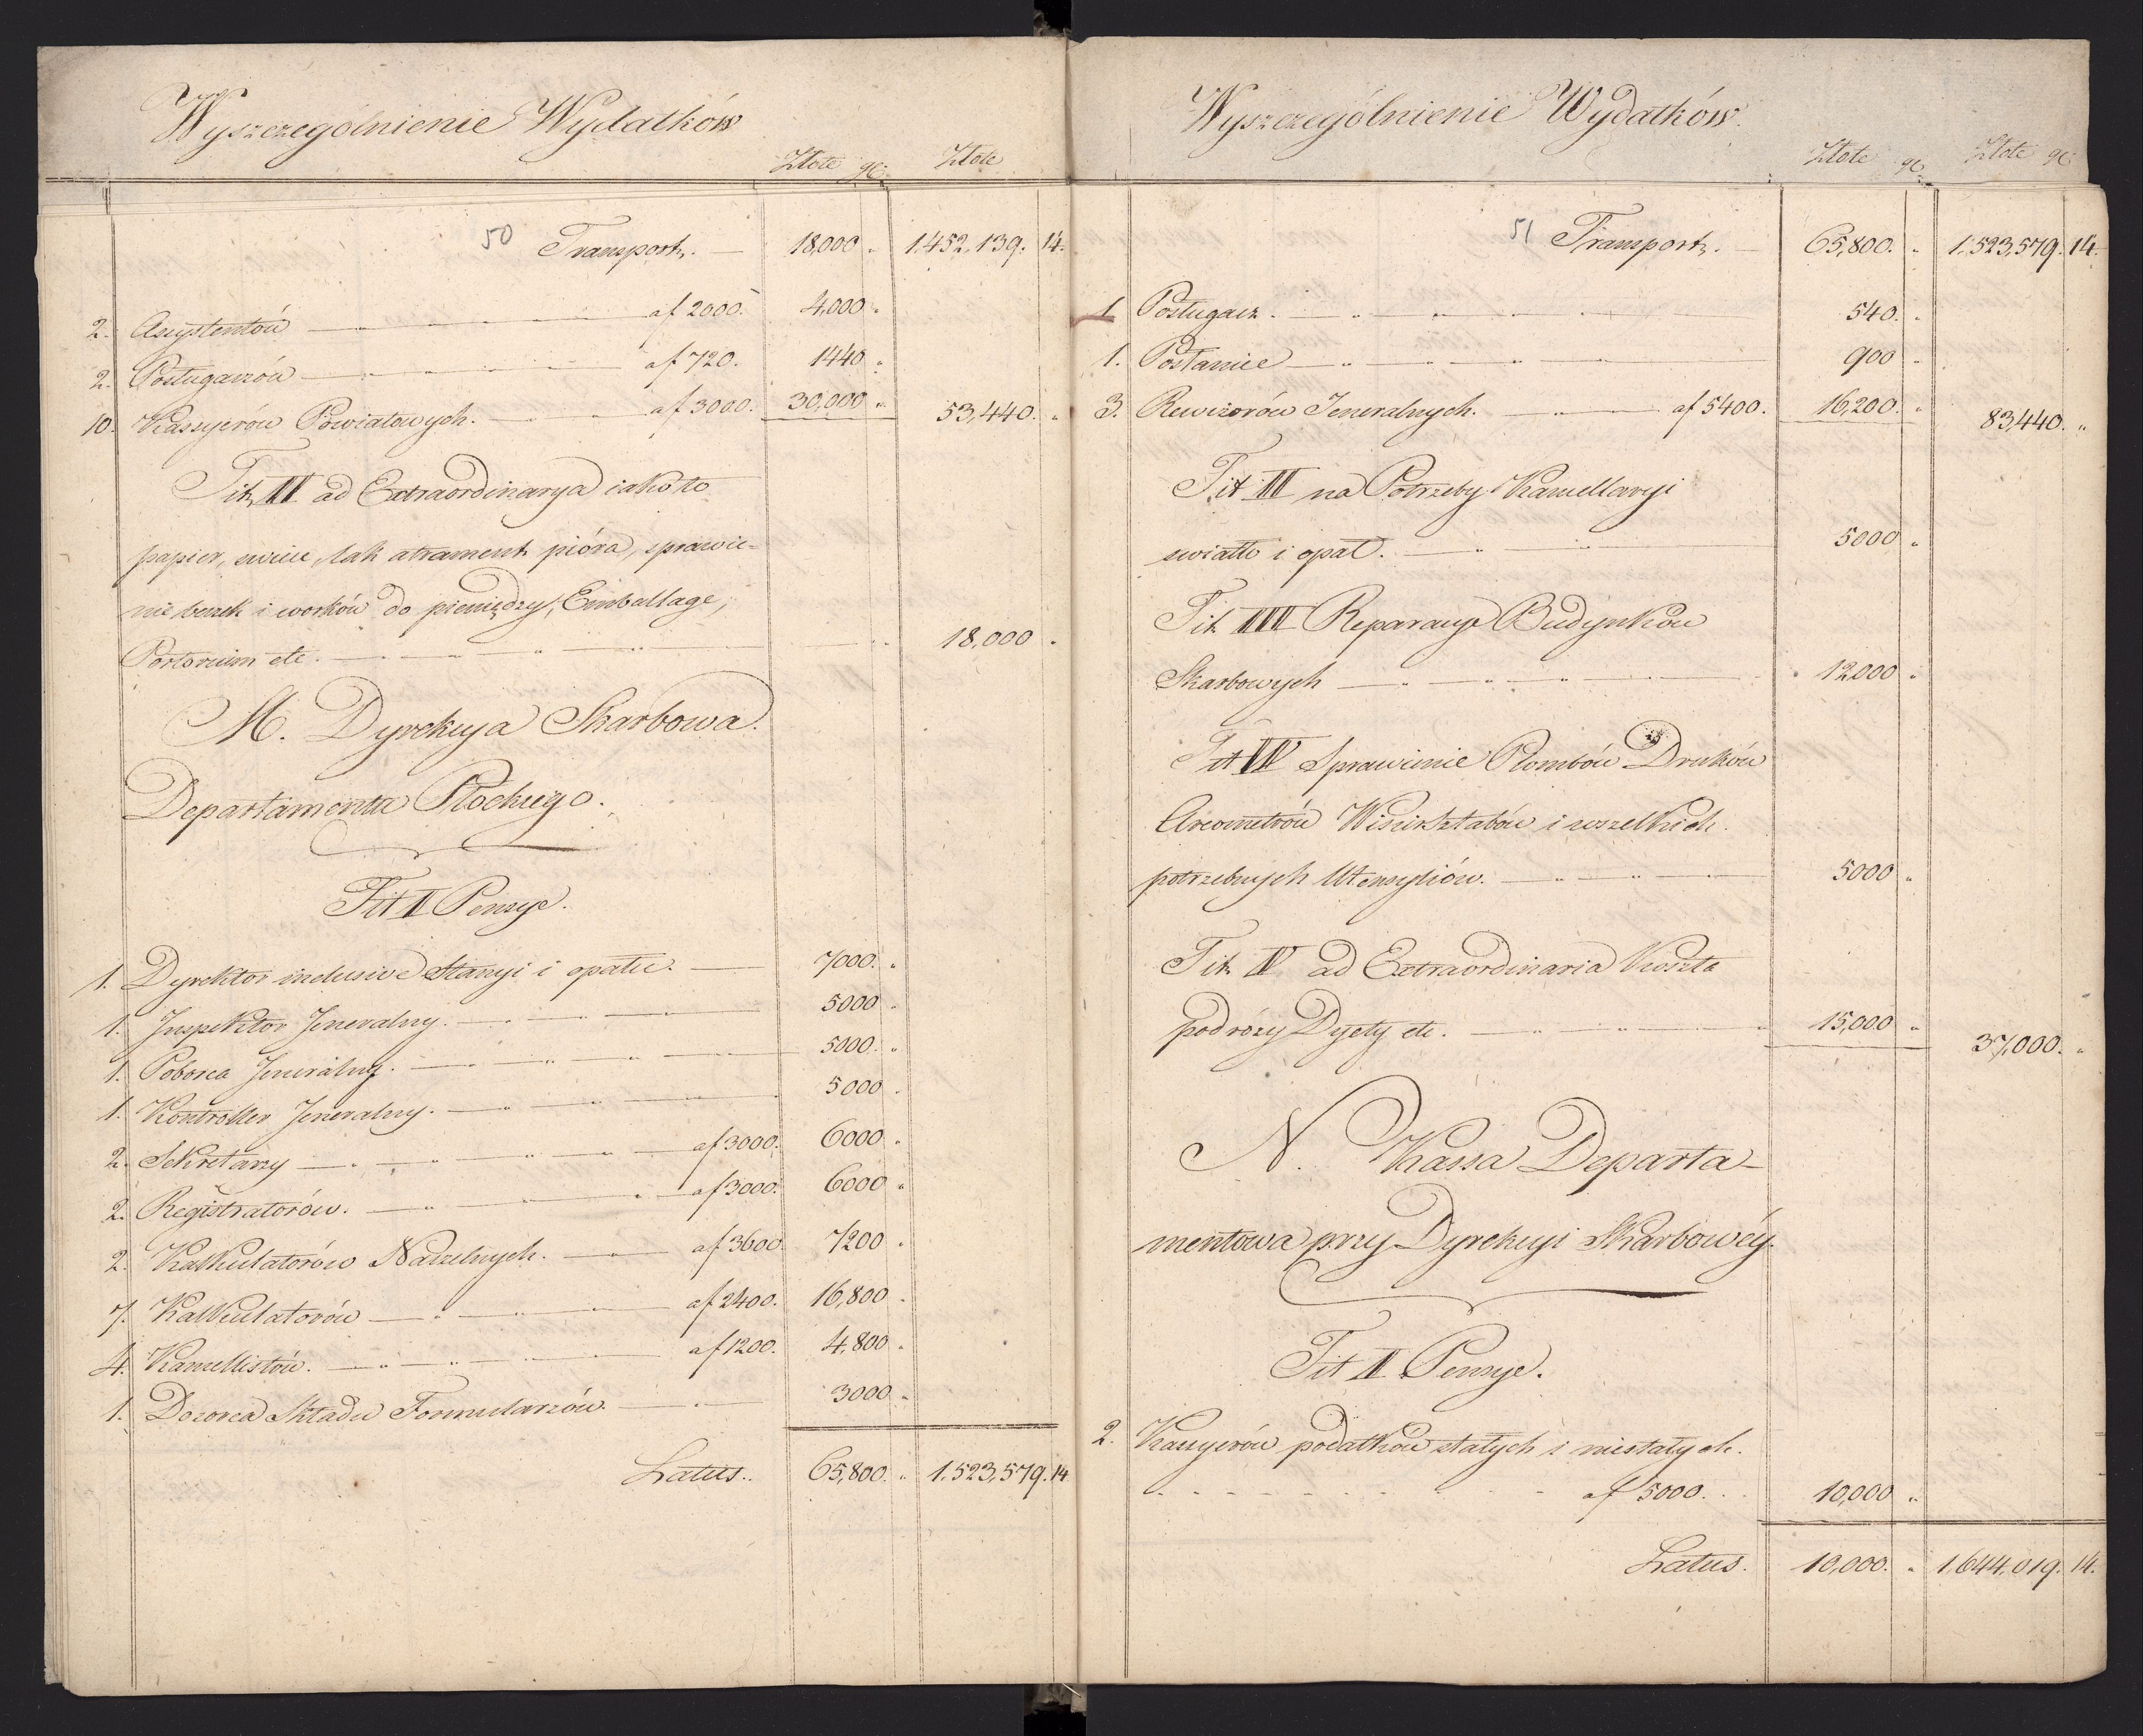 Wyszczególnienie Wydatków
Złote gr. Złote
50 Transport. 18,000 „ 1,452,139. 14.
2. Assystentów af 2000. 4,000 „
2. Posługaczów af 720. 1440 „
10. Kassyerów Powiatowych. af 3000. 30,000 „ 53,440. „
Tit. II ad Extraordinarya iako to
papier, swiece, lak atrament pióra, sprawie-
nie beczek i worków do pieniędzy, Emballage,
Portorium etc. 18,000 „
M. Dyrekcya Skarbowa.
Departamentu Płockiego.
Tit I Pensye.
1. Dyrektor inclusive Stancyi i opału. 7000. „
1. Inspektor Jeneralny. 5000 „
1. Poborca Jeneralny. 5000. „
1. Kontroller Jeneralny. 5000 „
2. Sekretarzy af 3000. 6000 „
2. Registratorów. af 3000. 6000 „
2. Kalkulatorów Naczelnych. af 3600 7200 „
7. Kalkulatorów af 2400. 16,800 „
4. Kancellistów. af 1200. 4,800 „
1. Dozorca Składu Formularzów. 3000 „
Latus. 65,800. „ 1,523,579. 14
Wyszczególnienie Wydatków.
Złote gr. Złote gr.
51 Transport. 65,800. „ 1,523,579. 14.
1 Posługacz. 540. „
1. Posłaniec 900 „
3. Rewizorów Jeneralnych. af 5400. 16,200. „ 83,440. „
Tit II na Potrzeby Kancellaryi
swiatło i opał. 5000 „
Tit. III Reparacye Budynków
Skarbowych 12,000 „
Tit IV Sprawienie Plombów Druków
Areometrów Wisirsztabów i wszelkich
potrzebnych Utensyliów. 5000 „
Tit. V ad Extraordinaria Koszta
podróży Dyety etc. 15,000 „ 37,000. „
N. Kassa Departa-
mentowa przy Dyrekcyi Skarbowéy.
Tit I Pensye.
2. Kassyerów podatków stałych i niestałych.
af 5000. 10,000 „
Latus. 10,000. „ 1,644,019. 14.